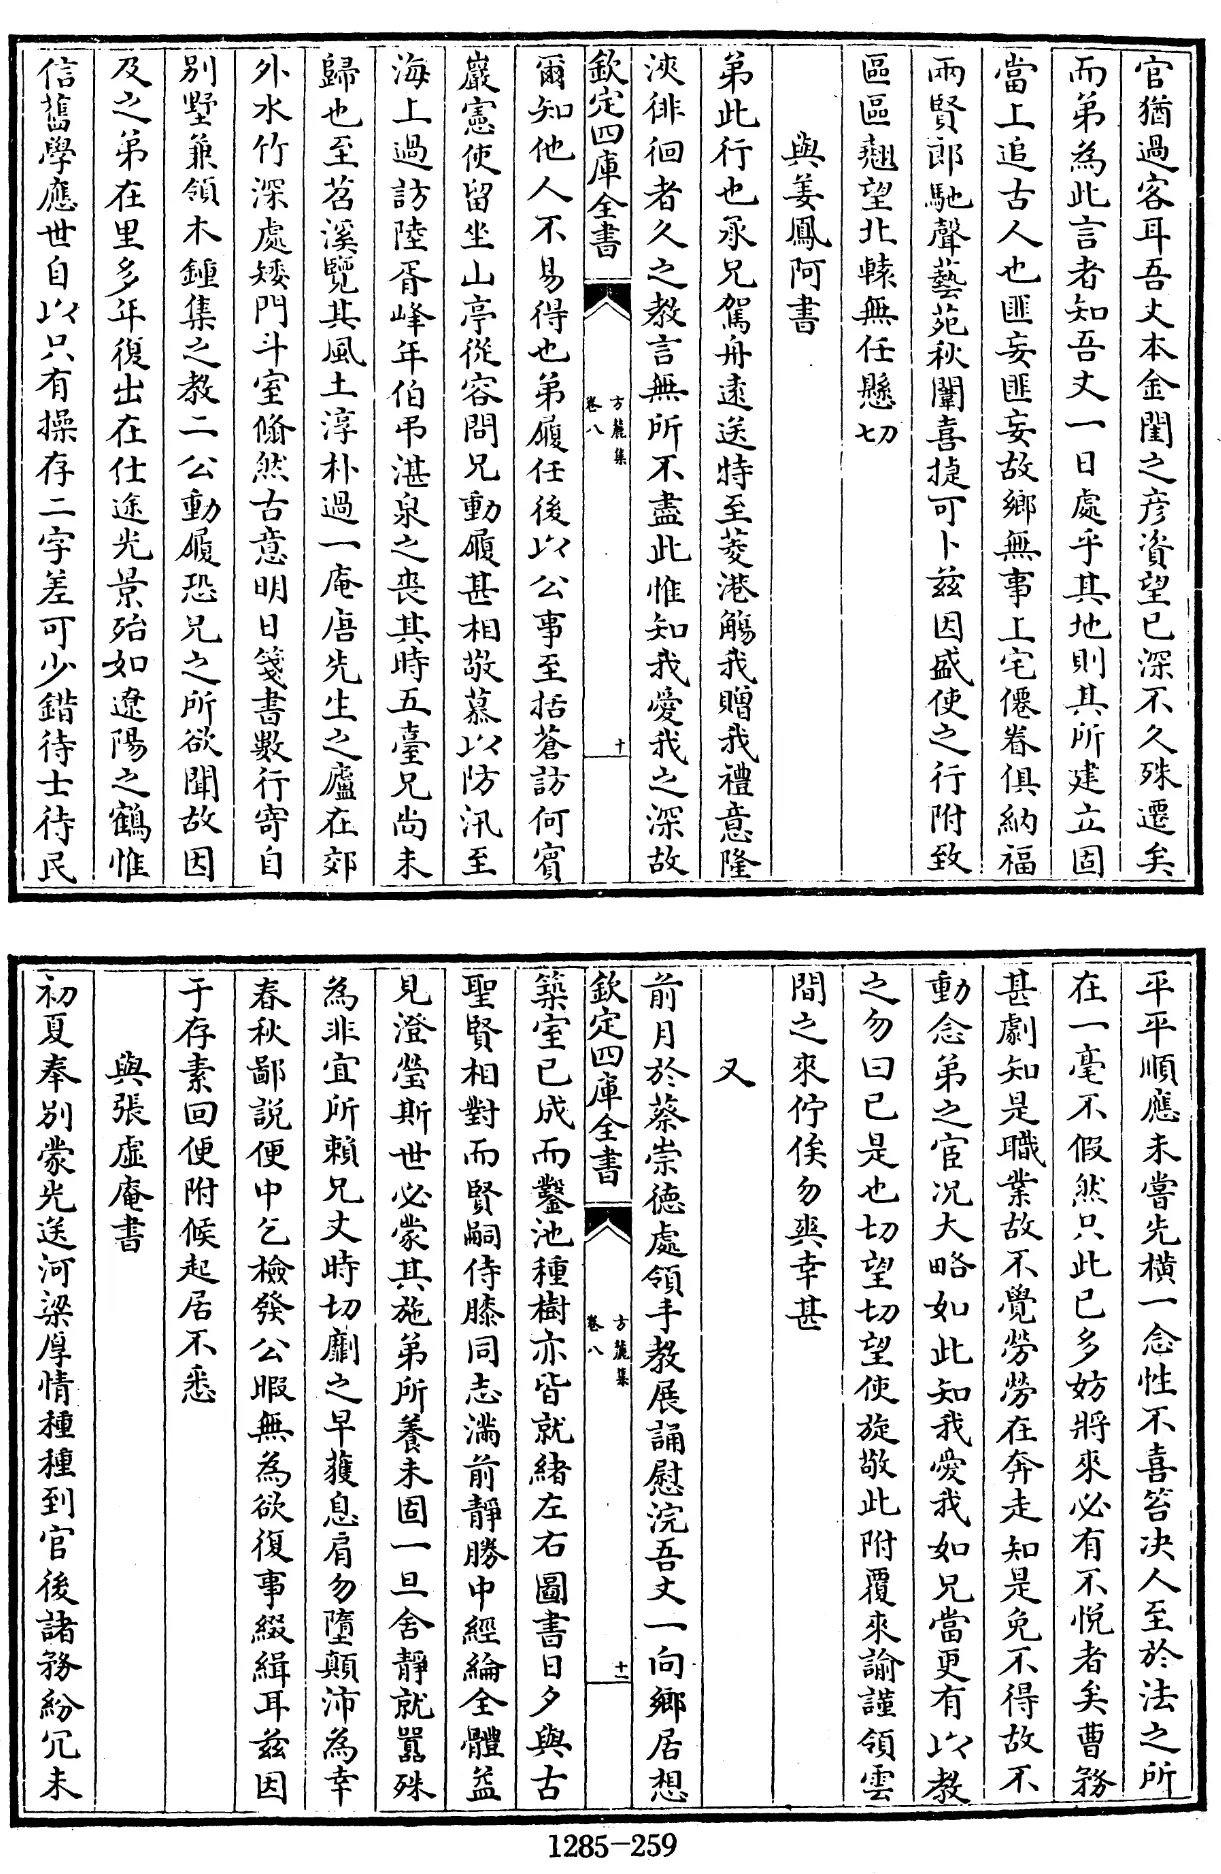 官猶過客耳吾丈本金閨之彦資望已深不久殊遷矣
而弟為此言者知吾丈一日處乎其地則其所建立固
當上追古人也匪妄匪妄故鄉無事上宅僊眷俱納福
兩賢郎馳聲藝苑秋闈喜捷可卜兹因盛使之行附致
區區翹望北轅無任懸切
與姜鳳阿書
弟此行也承兄駕舟逺送特至菱港觴我贈我禮意隆
浹徘徊者久之教言無所不盡此惟知我愛我之深故
欽定四庫全書
方麓集
卷八
十
爾知他人不易得也弟履任後以公事至括蒼訪何賓
巖憲使留坐山亭從容問兄動履甚相敬慕以防汛至
海上過訪陸胥峰年伯弔湛泉之喪其時五臺兄尚未
歸也至苕溪覽其風土淳朴過一庵唐先生之廬在郊
外水竹深處矮門斗室翛然古意明日箋書數行寄自
别墅兼領木鍾集之教二公動履恐兄之所欲聞故因
及之弟在里多年復出在仕途光景殆如遼陽之鶴惟
信舊學應世自以只有操存二字差可少錯待士待民
平平順應未嘗先横一念性不喜笞决人至於法之所
在一毫不假然只此已多妨將來必有不悦者矣曹務
甚劇知是職業故不覺勞勞在奔走知是免不得故不
動念弟之宦况大略如此知我愛我如兄當更有以教
之勿曰已是也切望切望使旋敬此附覆來諭謹領雲
間之來佇俟勿爽幸甚
又
前月於蔡崇德處領手教展誦慰浣吾丈一向鄉居想
欽定四庫全書
方麓集
卷八
十一
築室已成而鑿池種樹亦皆就緒左右圖書日夕與古
聖賢相對而賢嗣侍膝同志滿前靜勝中經綸全體益
見澄瑩斯世必蒙其施弟所養未固一旦舍靜就囂殊
為非宜所賴兄丈時切劘之早獲息肩勿墮顛沛為幸
春秋鄙説便中乞檢發公暇無為欲復事綴緝耳兹因
于存素回便附候起居不悉
與張虚庵書
初夏奉别蒙光送河梁厚情種種到官後諸務紛冗未
1285-259